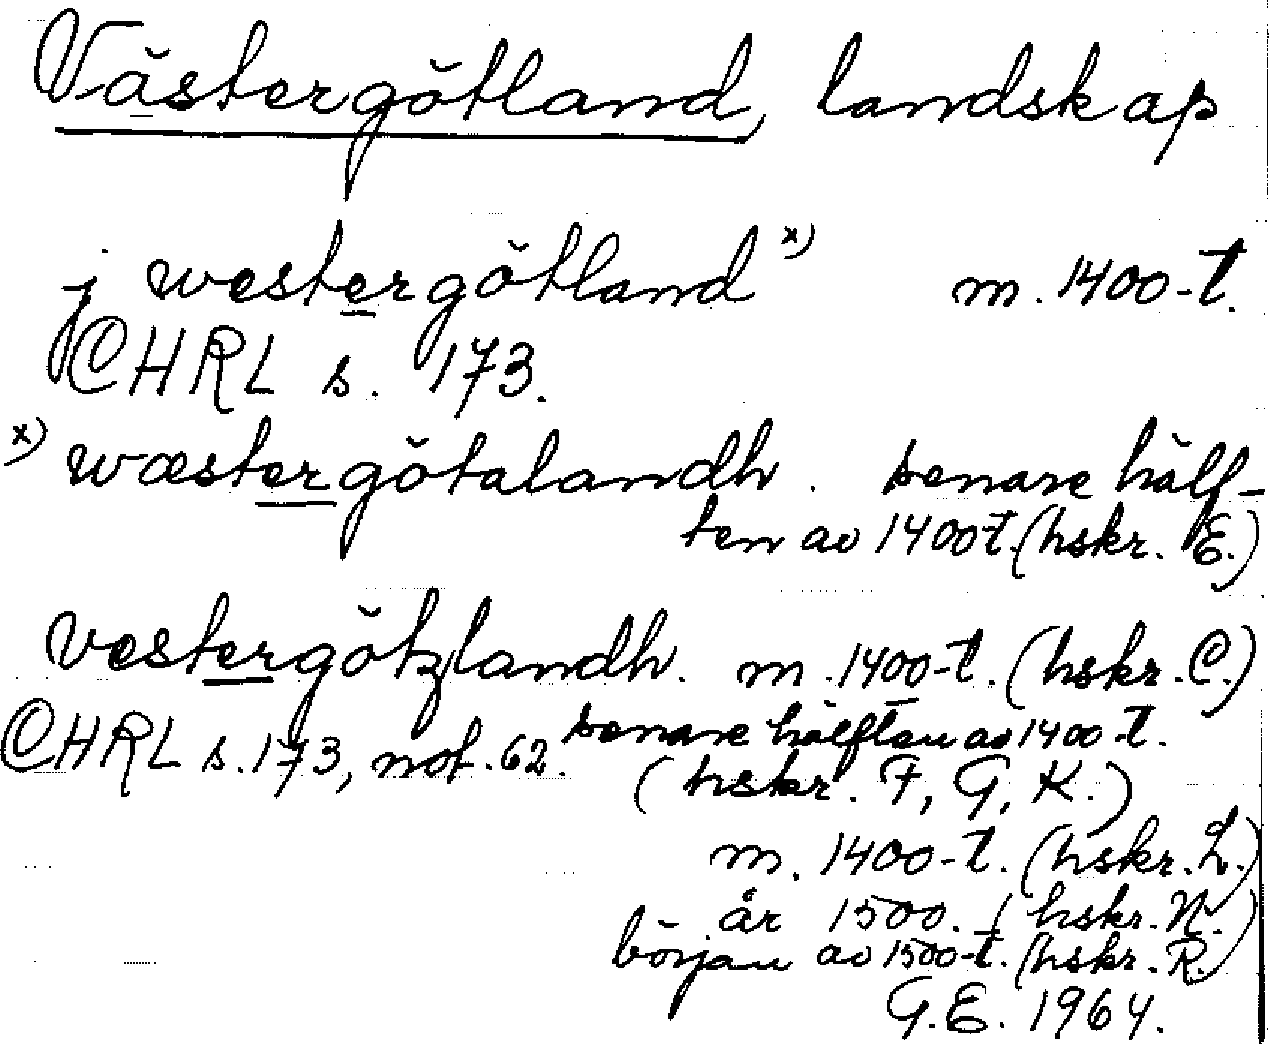 Västergötland, landskap
j westergötland x) m. 1400-t.
CHRL s. 173.
x) wæstergötalandh. senare hälf-
ten av 1400t. (hskr. E.)
vestergötzlandh. m. 1400-t. (hskr. C.)
senare hälften av 1400-t.
CHRL s. 173, not. 62.
(hskr. F, G, K.)
m. 1400-t. (hskr. L.)
år 1500. (hskr. N.)
början av 1500-t. (hskr. R.)
G.E. 1964.